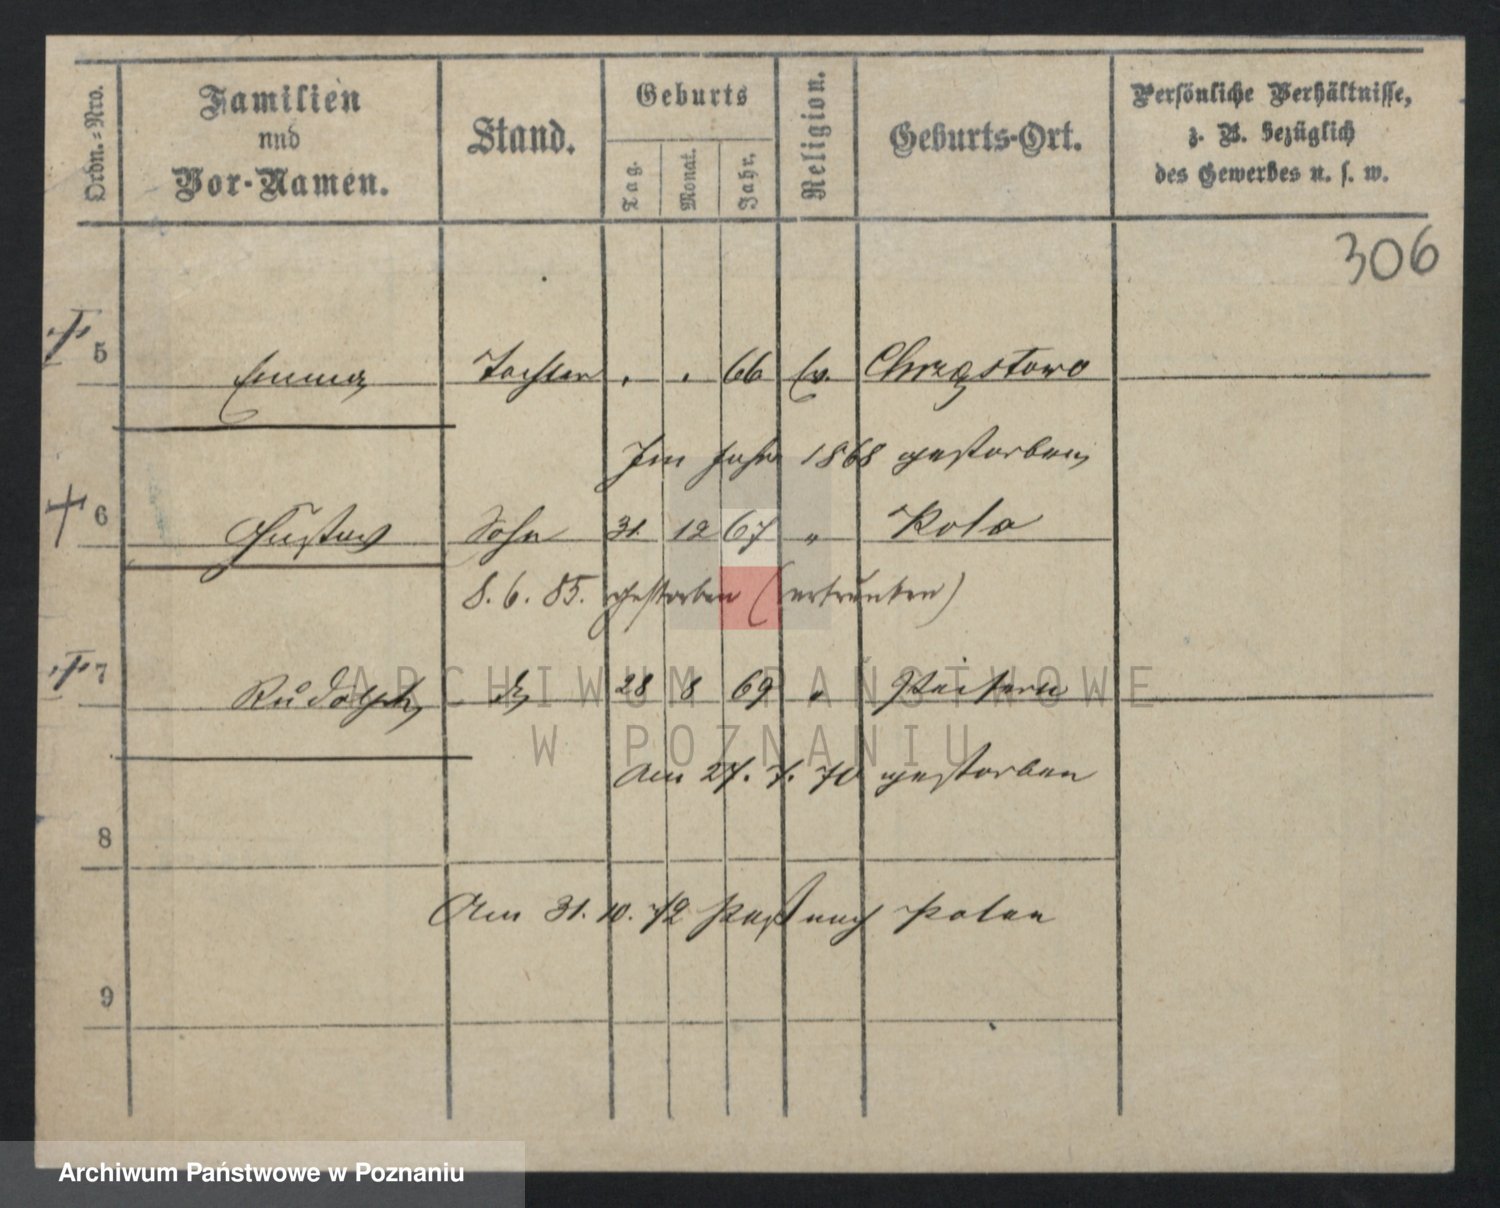 Ordn.=Nro.
Familien
und
Vor-Namen.
Stand.
Geburts
Tag.
Monat.
Jahr.
Religion.
Geburts-Ort.
Persönliche Verhältnisse,
z. B. bezüglich
des Gewerbes u. s. w.
306
5 Emma Tochter . . 66 Ev. Chrząstowo
Im Jahre 1868 gestorben
6 Gustav Sohn 31. 12 67 „ Kolo
8. 6. 85. gestorben (ertrunken)
7 Rudolph 28 8 69 „
ARCHIWUM PAŃSTWOWE
W POZNANIU
Am 27. 7. 70 gestorben
8
Am 31. 10. 72 Paß nach Polen
9
Archiwum Państwowe w Poznaniu